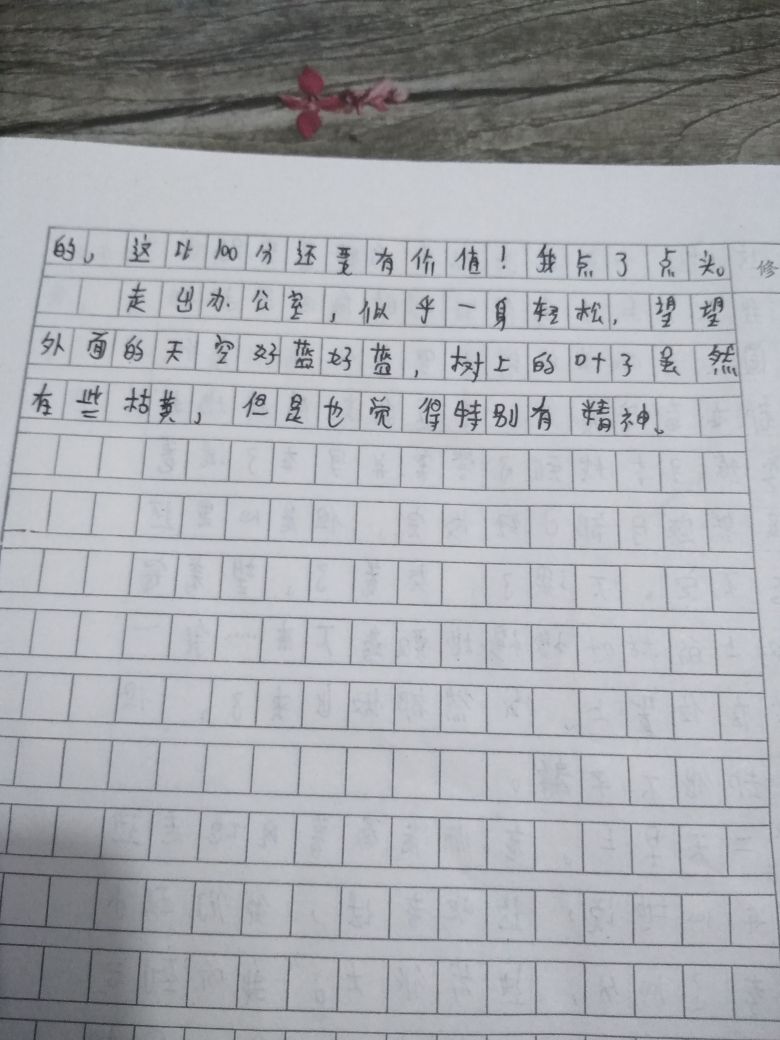 的。这比100分还要有价值！我点了点头。
修
走出办公室，似乎一身轻松，望望
外面的天空好蓝好蓝，树上的叶子虽然
有些枯黄，但是也觉得特别有精神。